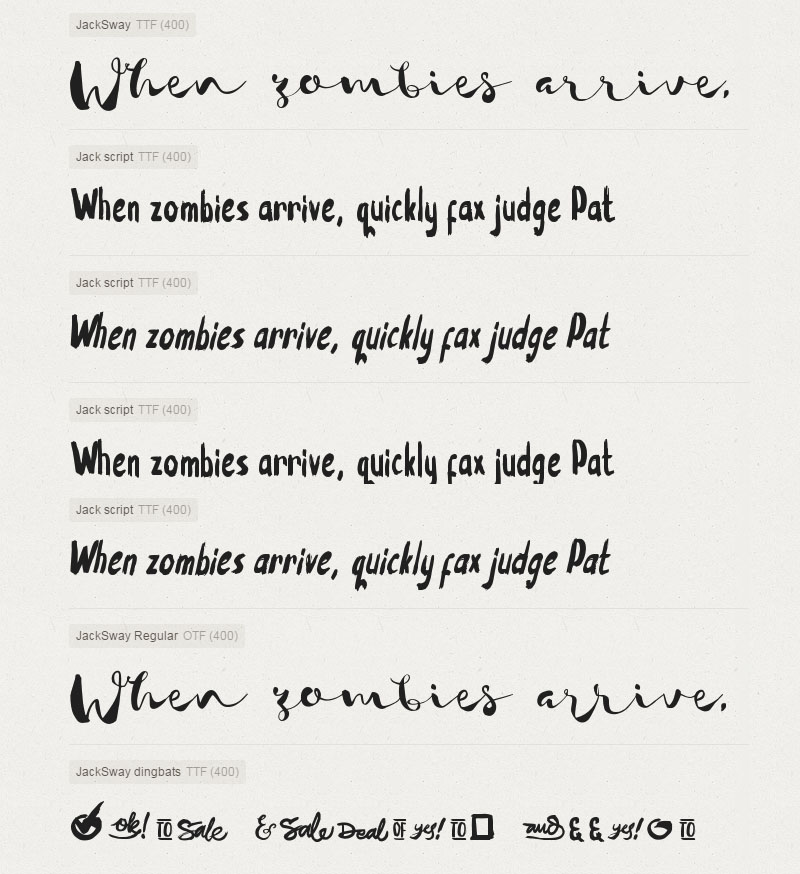 JackSway TTF (400)
When zombies arrive,
Jack script TTF (400)
When zombies arrive, quickly fax judge Pat
Jack script TTF (400)
When zombies arrive, quickly fax judge Pat
Jack script TTF (400)
When zombies arrive, quickly fax judge Pat
Jack script TTF (400)
When zombies arrive, quickly fax judge Pat
JackSway Regular OTF (400)
When zombies arrive,
JackSway dingbats TTF (400)
ok! TO Sale & Sale Deal OF yes! TO and & & yes! TO